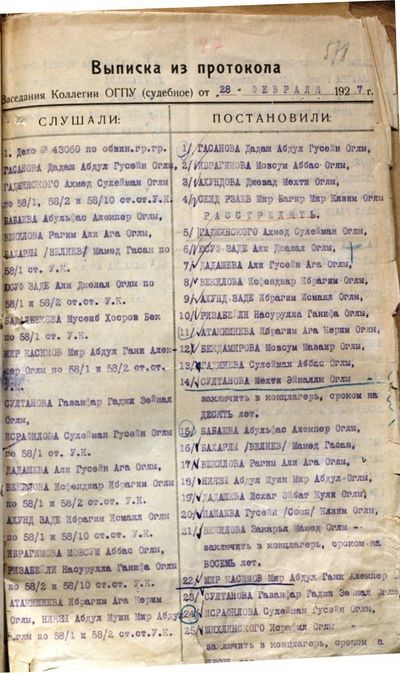 Выписка из протокола
Заседания Коллегии ОГПУ (судебное) от 28 - ФЕВРАЛЯ 1927 г.
СЛУШАЛИ:
1. Дело № 43060 по обвин.гр.гр.
ГАСАНОВА Дадаш Абдул Гусейн Оглы,
ГАДЖИНСКОГО Ахмед Сулейман Оглы
по 58/1, 58/2 и 58/10 ст.ст.У.К.
БАБАЕВА Абульфас Алекпер Оглы,
ВЕКИЛОВА Рагим Али Ага Оглы,
БАХАРЛЫ /ВЕЛИЕВ/ Мамед Гасан по
58/1 ст. У.К.
ЮСУФ ЗАДЕ Али Джелал Оглы по
58/1 и 58/2 ст.ст. У.К.
Мусеиб Хосров Бек
по 58/1 ст. У.К.
МИР КАСИМОВ Мир Абдул Гани Алек-
пер Оглы по 58/1 и 58/2 ст.ст.
СУЛТАНОВА Газанфар Гаджи Зейнал
Оглы,
ИСРАФИЛОВА Сулейман Гусейн Оглы
по 58/1 ст. У.К.
ДАДАШЕВА Али Гусейн Ага Оглы,
ВЕКИЛОВА Исфендиар Ибрагим Оглы
по 58/1 и 58/2 ст.ст.У.К.
АХУНД ЗАДЕ Ибрагим Исмаил Оглы
по 58/1 и 58/10 ст.ст. У.К.
ИБРАГИМОВА МОВСУМ Аббас Оглы,
РИЗАБЕЙЛИ Насурулла Ганифа Оглы
по 58/2 и 58/10 ст.ст. У.К.
АТАКИШИЕВА Ибрагим Ага Керим
Оглы, НИЯЗЫ Абдул Муин Мир Абдул
Оглы по 58/1 и 58/2 ст.ст.У.К.
ПОСТАНОВИЛИ:
1/ ГАСАНОВА Дадаш Абдул Гусейн Оглы,
2/ ИБРАГИМОВА Мовсум Аббас-Оглы,
3/ АХУНДОВА Джевад Мехти Оглы,
4/ СЕИД РЗАЕВ Мир Багир Мир Клеим Оглы
РАССТРЕЛЯТЬ.
5/ ГАДЖИНСКОГО Ахмед Сулейман Оглы,
6/ ЮСУФ-ЗАДЕ Али Джалал Оглы,
7/ ДАДАШЕВА Али Гусейн Ага Оглы,
8/ ВЕКИЛОВА Исфендиар Ибрагим-Оглы,
9/ АХУНД ЗАДЕ Ибрагим Исмаил Оглы,
10/ РИЗАБЕЙЛИ Насурулла Ганифа Оглы,
11/ АТАКИШИЕВА Ибрагим Ага Керим Оглы,
12/ БЕКДАМИРОВА Мовсум Оглы,
13/ ГАДЖИЕВА Сулейман Аббас Оглы,
14/ СУЛТАНОВА Мехти Эйналлы Оглы -
заключить в концлагерь, сроком на
ДЕСЯТЬ лет.
15/ БАБАЕВА Абульфас Алекпер Оглы,
16/ БАХАРЛЫ /ВЕЛИЕВ/ Мамед Гасан,
17/ ВЕКИЛОВА Рагим Али Ага Оглы,
18/ НИЯЗЫ Абдул Муин Мир Абдул-Оглы,
19/ ДАДАШЕВА Исхаг Эйбат Кули Оглы,
20/ ПАШАЕВА Гусейн Клязим Оглы,
21/ ВЕКИЛОВА Закарья Мамед Оглы -
заключить в концлагерь, сроком-на
ВОСЕМЬ лет.
22/ МИР КАСИМОВ Мир Абдул Гани Алекпер Оглы
23/ СУЛТАНОВА Газанфар Гаджи Зейнал Оглы
24/ ИСРАФИЛОВА Сулейман Гусейн Оглы,
25/ ШИХЛИНСКОГО Исрафил Оглы -
заключить в концлагерь, сроком на